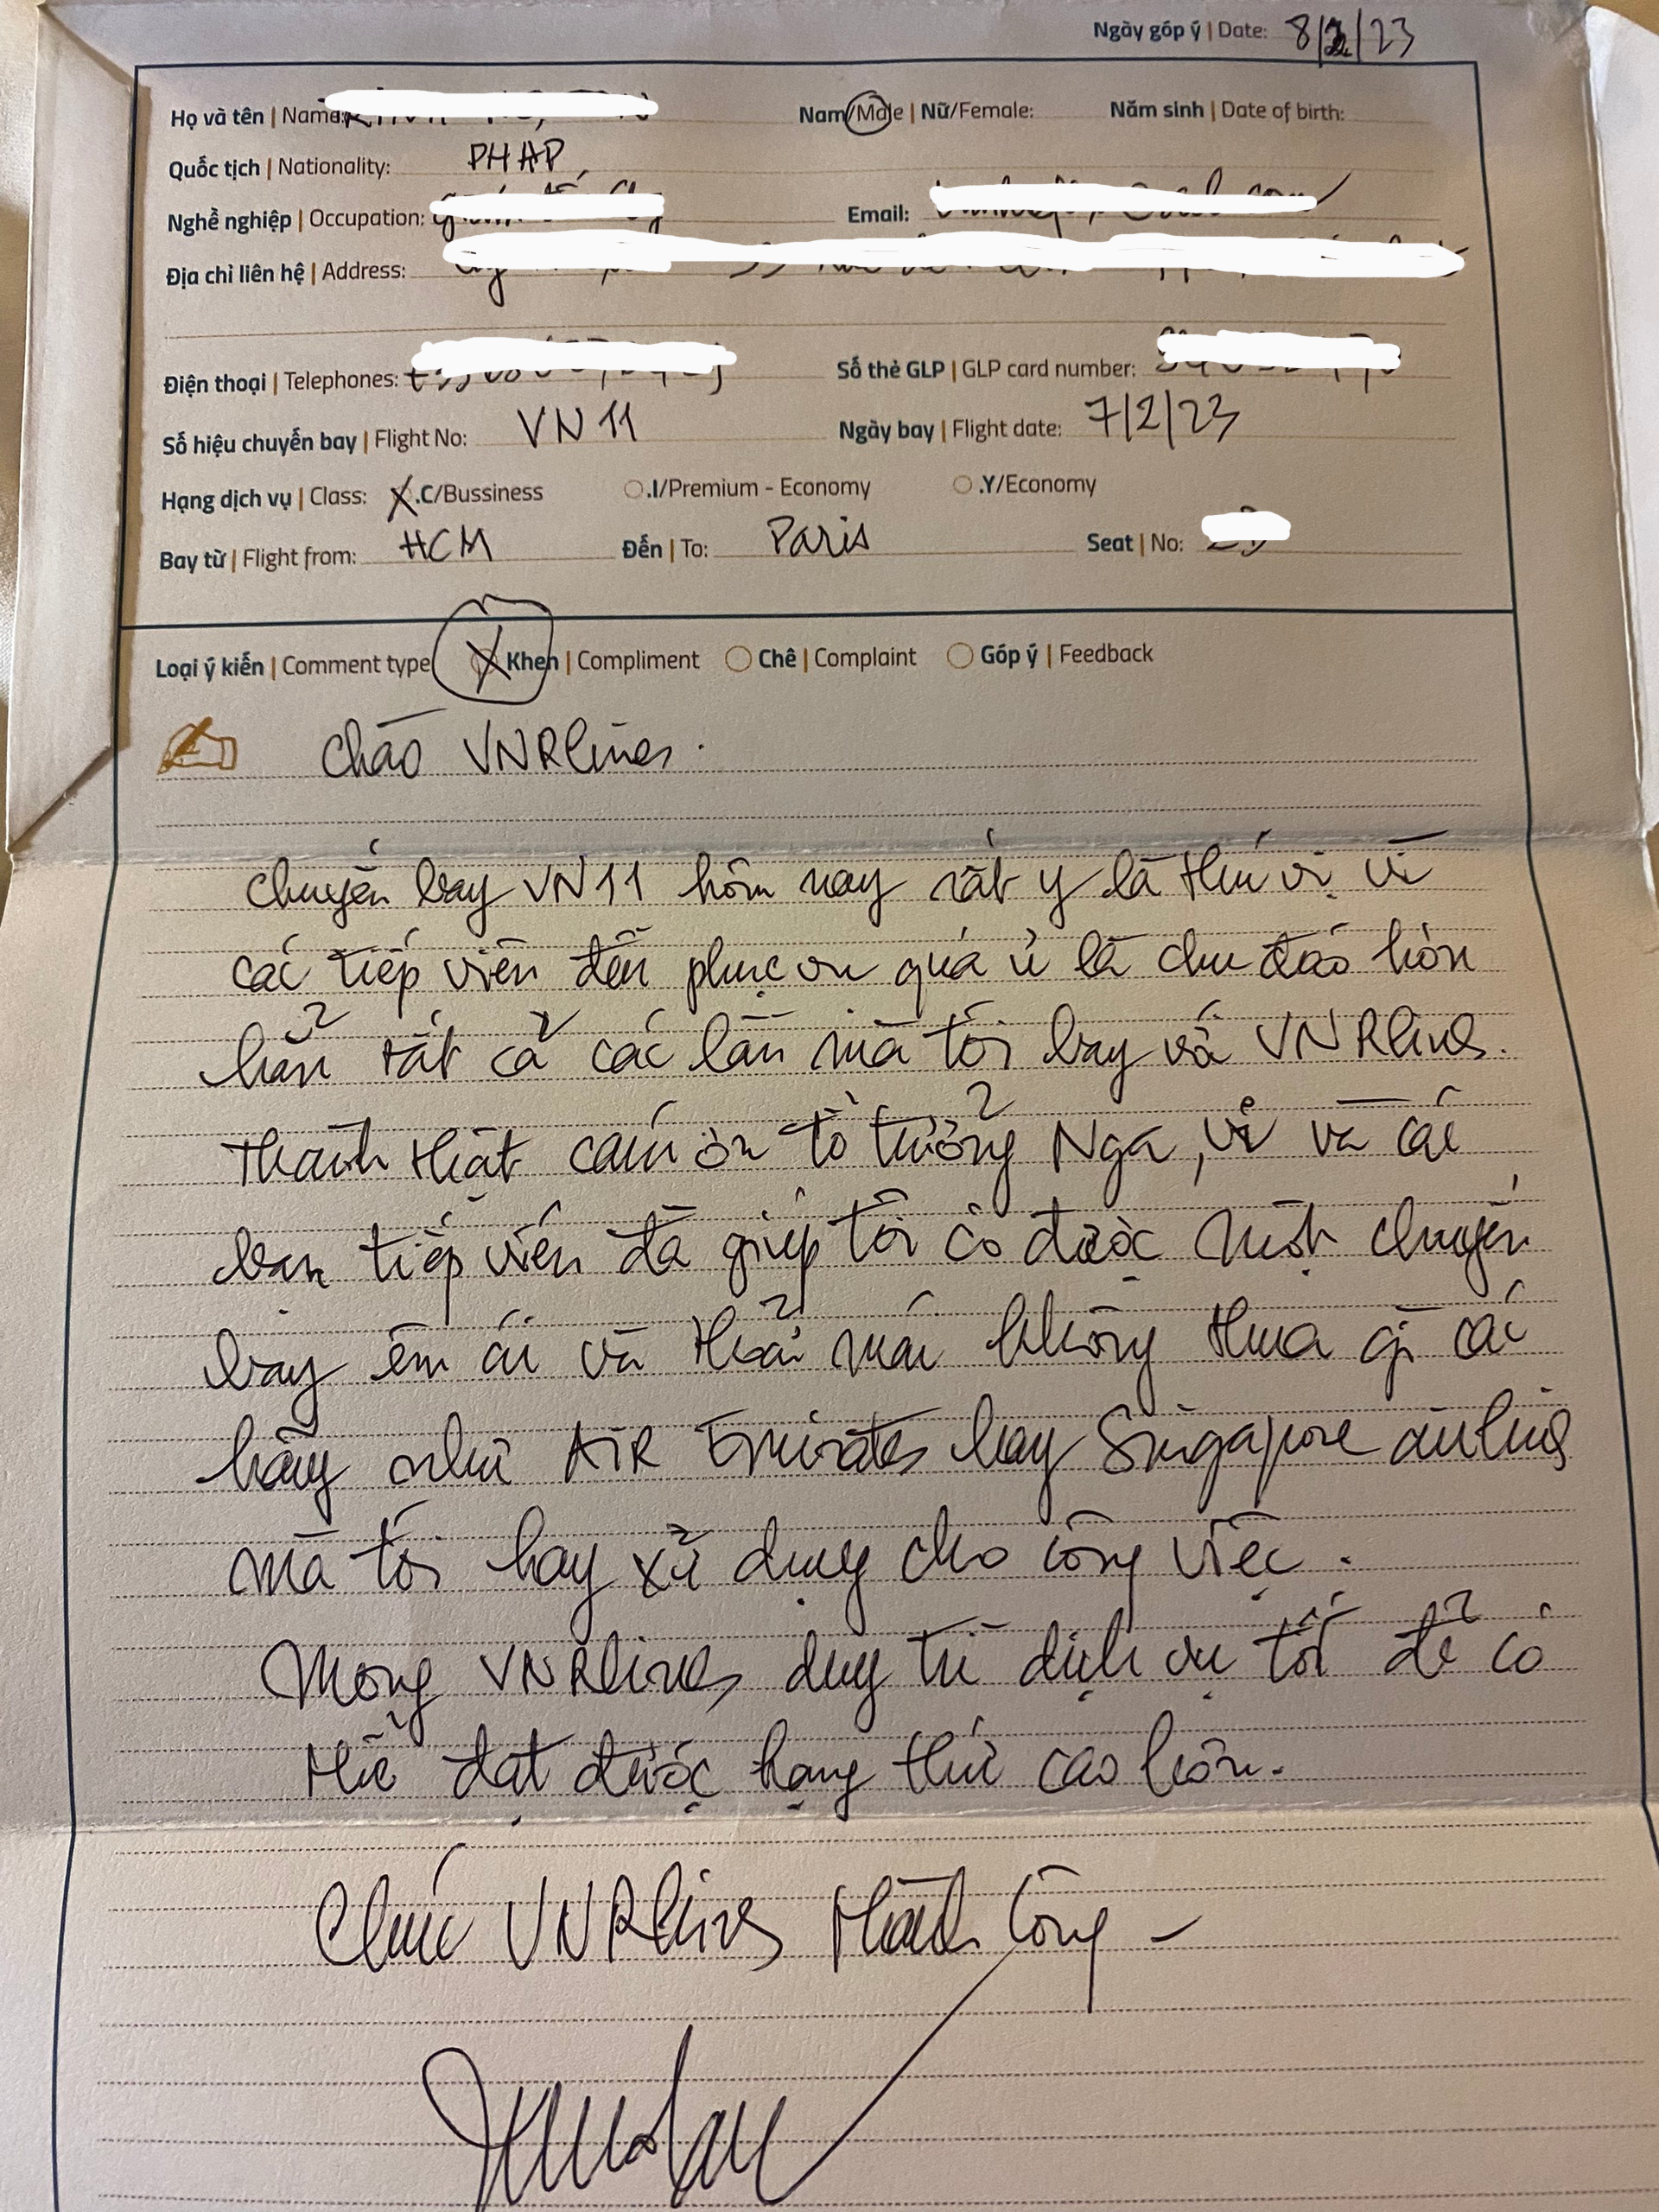 Ngày góp ý | Date: 8/2/23
Họ và tên | Name: Nam/Male | Nữ/Female: Năm sinh | Date of birth:
Quốc tịch | Nationality: PHAP
Nghề nghiệp | Occupation: Email:
Địa chỉ liên hệ | Address:
Điện thoại | Telephones: Số thẻ GLP | GLP card number:
Số hiệu chuyến bay | Flight No: VN 11 Ngày bay | Flight date: 7/2/23
Hạng dịch vụ | Class: X .C/Bussiness .I/Premium - Economy .Y/Economy
Bay từ | Flight from: HCM Đến | To: Paris Seat | No:
Loại ý kiến | Comment type X Khen | Compliment Chê | Complaint Góp ý | Feedback
Chào VNRlines.
chuyến bay VN11 hôm nay rất y là thú vị vì
các tiếp viên đến phục vụ quá ư là chu đáo hơn
hẳn tất cả các lần mà tôi bay với VNRlines.
thành thật cám ơn tổ trưởng Nga, và các
bạn tiếp viên đã giúp tôi có được một chuyến
bay êm ái và thoải mái không thua gì các
hãng như AIR Emirates hay Singapore airlines
mà tôi hay xử dụng cho công việc.
Mong VNRlines duy trì dịch vụ tốt để có
thể đạt được hạng thứ cao hơn.
Chúc VNRlines thành công -